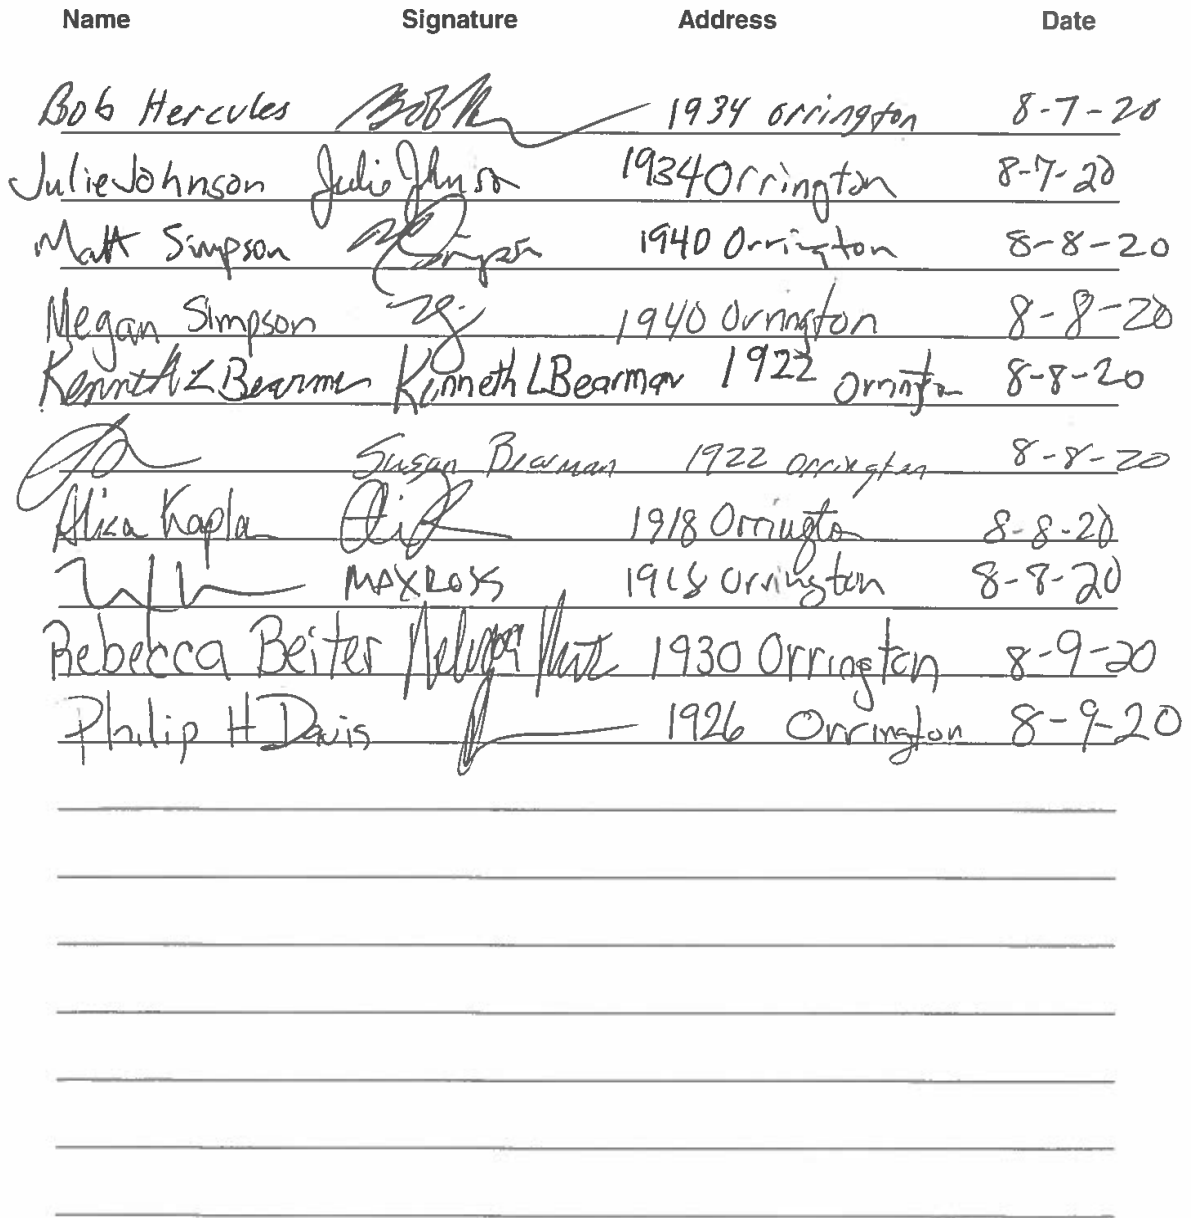 Name Signature Address Date
Bob Hercules Bob 1934 Orrington 8-7-20
Julie Johnson Julie Johnson 1934 Orrington 8-7-20
Matt Simpson Simpson 1940 Orrington 8-8-20
Megan Simpson 1940 Orrington 8-8-20
Kenneth L Bearman Kenneth L Bearman 1922 Orrington 8-8-20
Susan Bearman 1922 Orrington 8-8-20
Kaplan 1918 Orrington 8-8-20
MAX ROSS 1918 Orrington 8-8-20
Rebecca Beiter 1930 Orrington 8-9-20
Philip H Davis 1926 Orrington 8-9-20